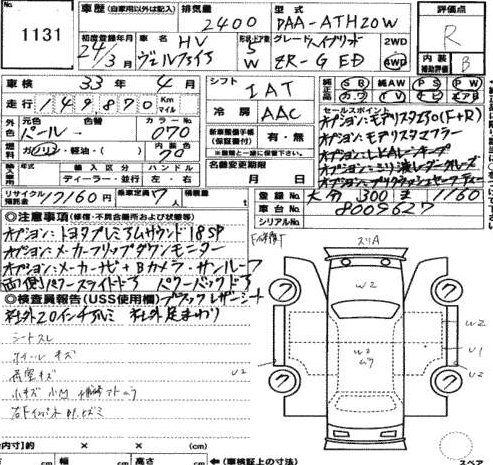 № 1131
車歴 (自家用以外は記入) 排気量 2400 型式 DAA-ATH20W 評価点 R
初度登録年月 24/3月 車名 HV ヴェルファイア 形状・ドア数 5 W グレード ハイブリッド ZR-G ED 2WD 4WD 内装 補助評価 B
車検 33年4月 シフト IAT 純正品 SR AW PS PW
走行 149,870 Km マイル 冷房 AAC カワ TV ナビ エアB
外装 元色 パール 色替 カラーNo. 070
燃料 ガソリン・軽油・( ) 内装色 70 新車整備手帳 (保証書付) 有・無
※書類と一緒に保管。
セールスポイント
オプション:モデリスタエアロ(F+R)
オプション:モデリスタマフラー
オプション:LKAレーンキープ
オプション:ミリ波レーダークルーズ
オプション:プリクラッシュセーフティー
輸入区分 ハンドル
ディーラー・並行 左・右
名義変更期限 月 日
リサイクル預託金 17160円 乗車定員 7人 積載量 t
登録No. 大分 300 1160
車台No. 8009627
シリアルNo.
◎注意事項(修復・不具合箇所および状態等)
オプション:トヨタプレミアムサウンド18SP
オプション:メーカーフリップダウンモニター
オプション:メーカーナビ+Bカメラ・サンルーフ
両側パワースライドドア パワーバックドア
◎検査員報告(USS使用欄) ブラックレザーシート
社外20インチアルミ 社外足まわり
シートスレ
ホイールキズ
荷室キズ
小キズ 小凹
W2
W2
ムラ
W2
U1
W2
U2
スリA
7
7
7
7
内寸】約 × × (cm)
cm 幅 cm 高さ cm ←(車検証上の寸法) スペア